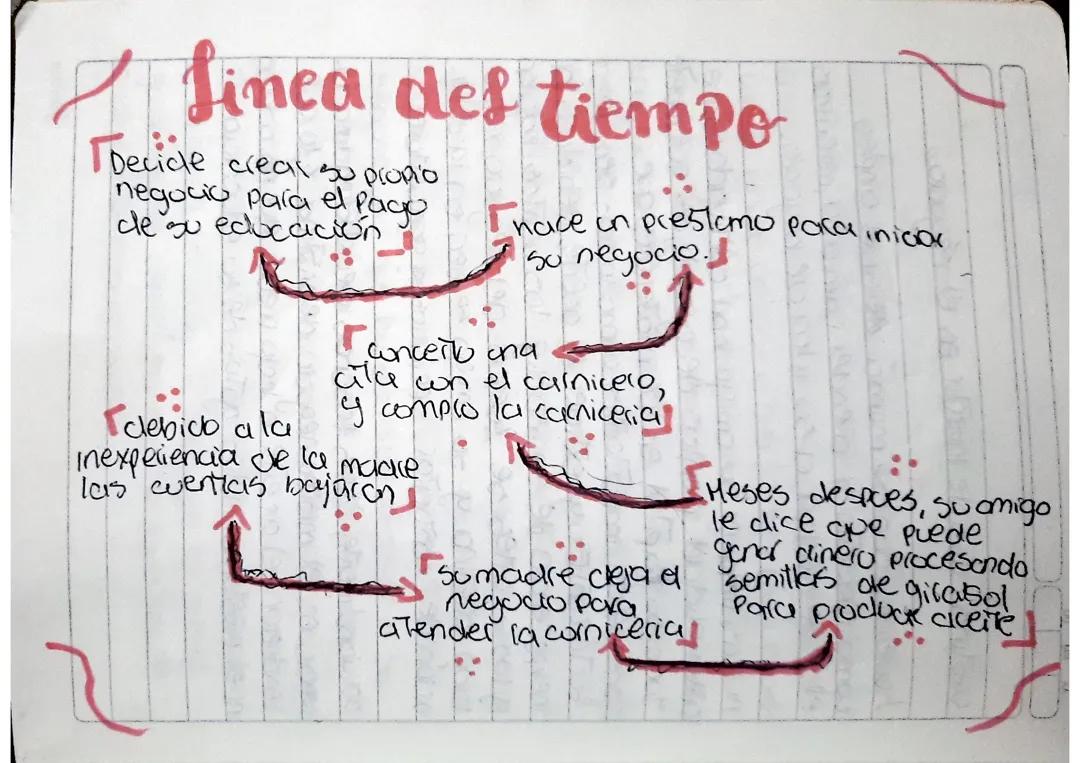 Linea del tiempo
Decide crear su propio
negocio para el pago
de su educación
hace un prestamo para iniciar
su negocio.
concerto una
cita con el carnicero,
y compro la carniceria
Meses despues, su amigo
le dice que puede
ganar dinero procesando
semillas de girasol
para producir aceite
su madre deja el
negocio para
atender la carniceria
debido a la
inexperiencia de la madre
las cuentas bajaron